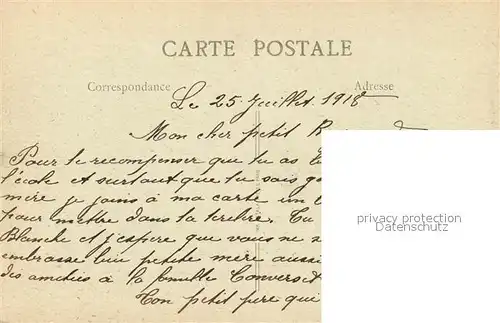 CARTE POSTALE
Correspondance Adresse
Le 25 Juillet 1918
Mon cher petit
Pour te recompenser que tu as
l'école et surtout que tu sois
mère je joins à ma carte un
pour mettre dans ta tirelire. Tu
Blanche et j'espere que vous ne
embrasse bien petite mère aussi
des amities à la famille Converset
Ton petit pere qui
privacy protection
Datenschutz